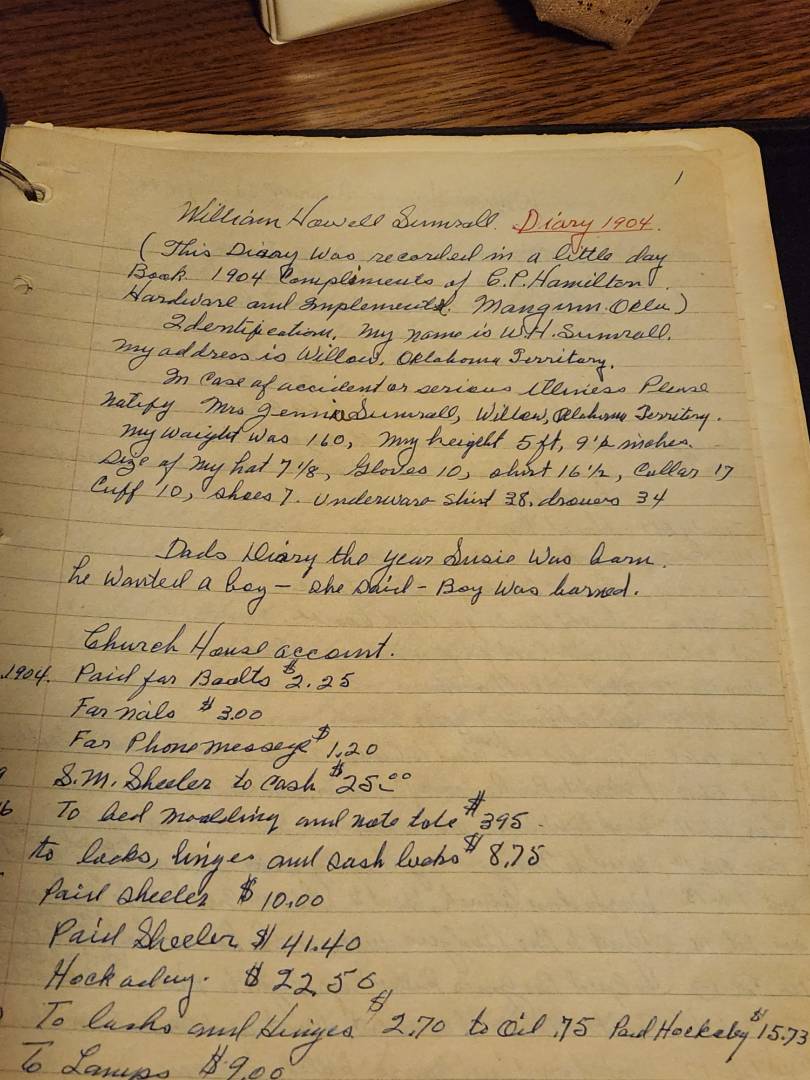 1
William Howell Sumrall. Diary 1904.
(This Diary was recorded in a little day
Book 1904 Compliments of C.P. Hamilton
Hardware and Implements. Mangum. Okla)
Identification, my name is W.H. Sumrall.
my address is Willow, Oklahoma Territory.
In case of accident or serious illness Please
natify Mrs Jennie Sumrall, Willow, Oklahoma Territory.
my waight was 160, my height 5 ft, 9 1/2 inches.
Size of my hat 7 1/8, Gloves 10, shirt 16 1/2, Collar 17
Cuff 10, shoes 7. Underware shirt 38, drawers 34
Dads Diary the year Susie was barn.
he wanted a boy - she said - Boy was barned.
Church House account.
1904. Paid for Baolts $2.25
For nails $3.00
For Phone message $1.20
S.M. Sheeler to cash $25.00
6 To bed moolding and $395.
to locks, hinges and sash locks $8.75
Paid sheeler $10.00
Paid Sheeler $41.40
Hockaday. $22.50
To and Hinges $2.70 to oil .75 Paid Hockaby $15.73
To Lamps $9.00